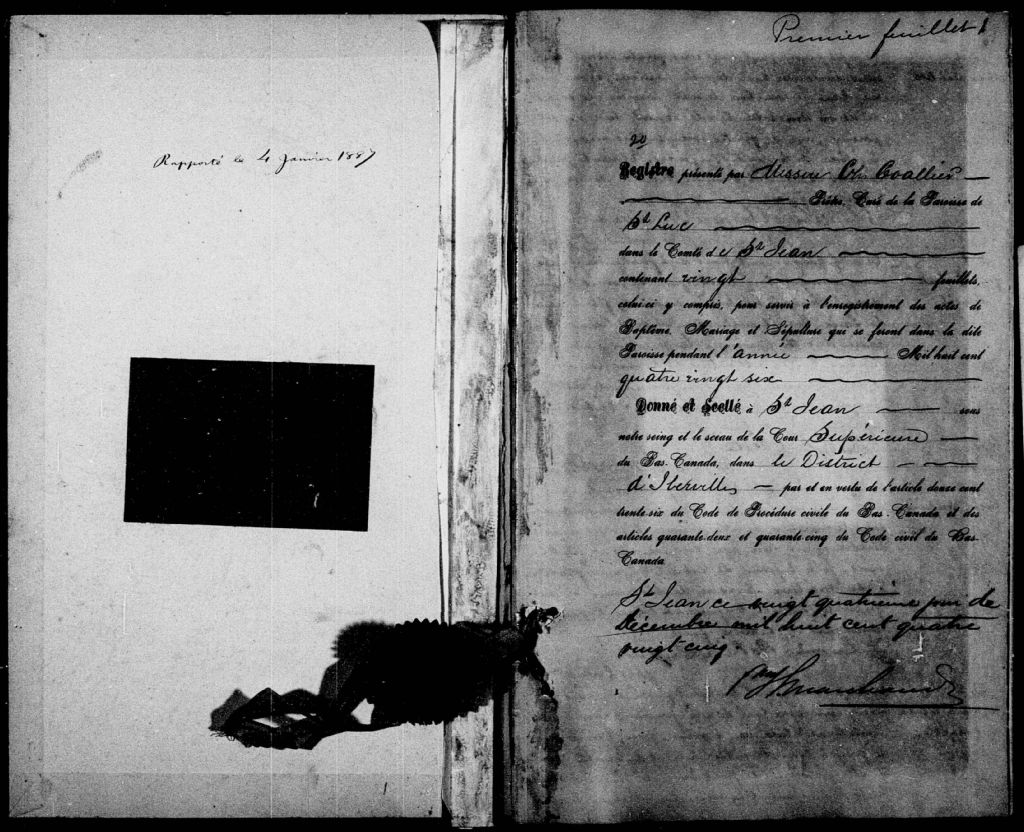 Rapporté le 4 Janvier 1887
Premier feuillet 1
20
Registre présenté par Messire Ch. Coallier
Prêtre, Curé de la Paroisse de
St Luc
dans le Comté de St Jean
contenant vingt feuillets,
celui-ci y compris, pour servir à l'enregistrement des actes de
Baptême, Mariage et Sépulture qui se feront dans la dite
Paroisse pendant l'année Mil huit cent
quatre vingt six
Donné et Scellé à St Jean sous
notre seing et le sceau de la Cour Supérieure
du Bas-Canada, dans le District
d'Iberville, par et en vertu de l'article douze cent
trente-six du Code de Procédure civile du Bas-Canada et des
articles quarante-deux et quarante-cinq du Code civil du Bas-
Canada
St Jean ce vingt quatrième jour de
Décembre mil huit cent quatre
vingt cinq.
Marchand